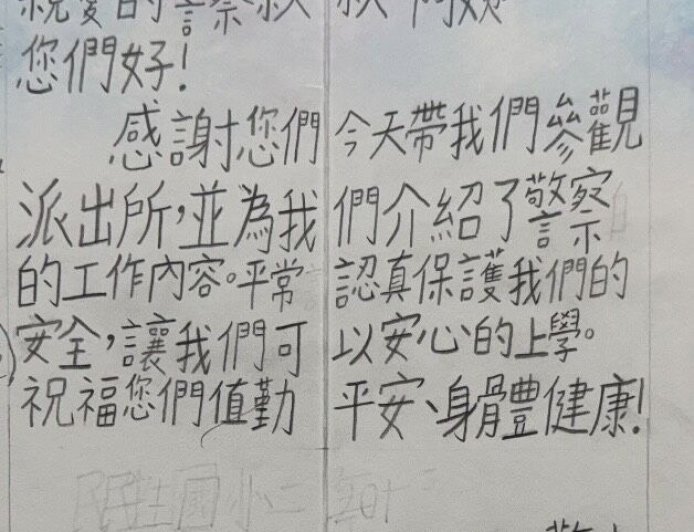 親愛的警察叔叔阿姨
您們好!
感謝您們今天帶我們參觀
派出所,並為我們介紹了警察
的工作內容。平常認真保護我們的
安全,讓我們可以安心的上學。
祝福您們值勤平安、身體健康!